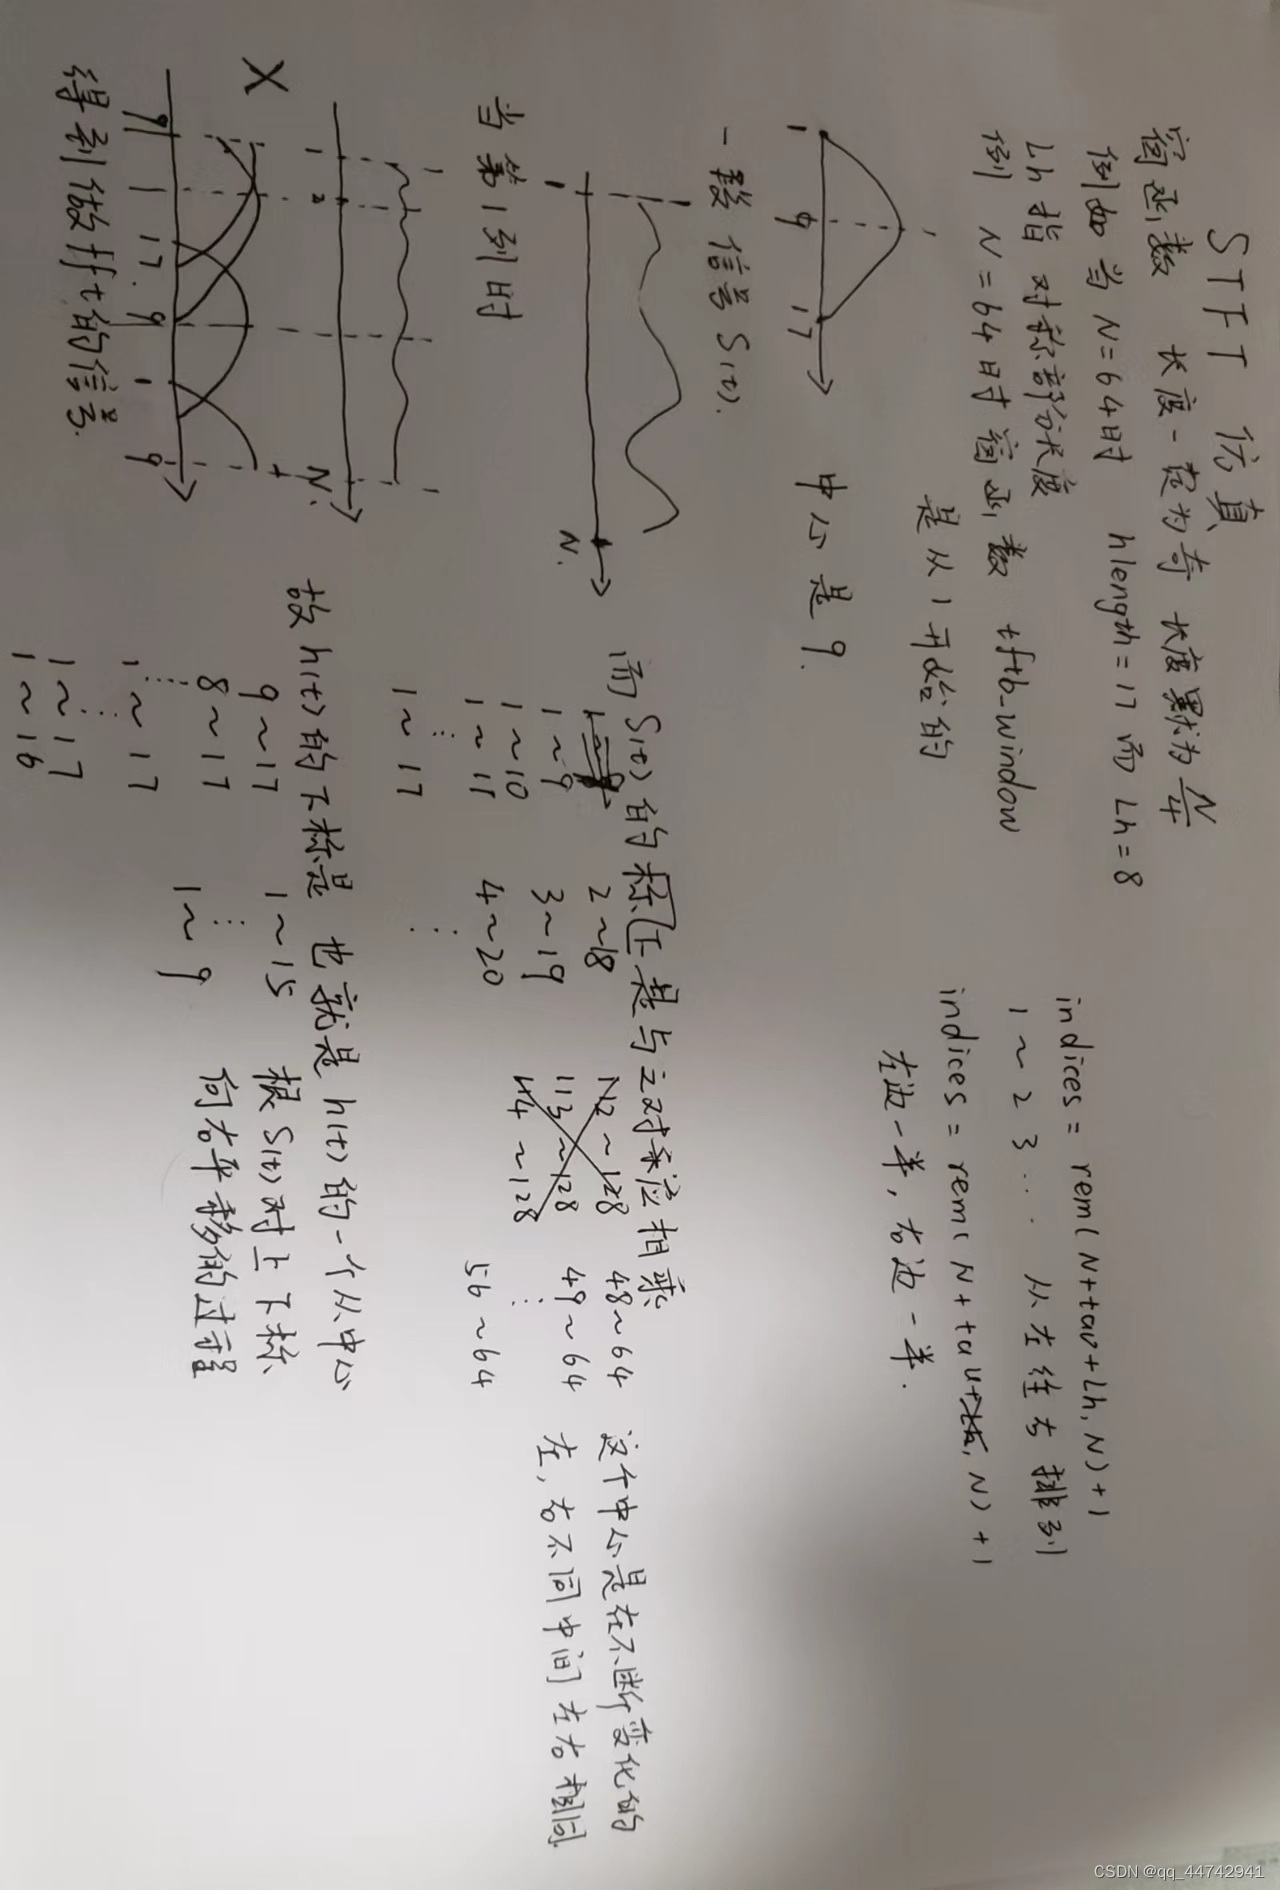 STFT 仿真
窗函数 长度一定为奇 长度默为 N/4
例如当 N=64时 hlength=17 而 Lh=8
Lh 指对称部分长度
例 N=64时 窗函数 tftb_window
是从1开始的
1 9 17
中心是9.
indices = rem(N+tau+Lh, N)+1
1~2 3... 从左往右排列
indices = rem(N+tau+, N)+1
左边一半，右边一半.
一段信号S(t).
1 N.
当第1列时
1 2 N.
X
9 1 17 9 1 9
得到做fft的信号.
而S(t)的标是与之对应相乘
1~9
1~10
1~11
⋮
1~17
2~18
3~19
4~20
⋮
112~128
113~128
114~128
48~64
49~64
⋮
56~64
这个中心是在不断变化的
左，右不同中间左右相同
故h(t)的下标是 也就是h(t)的一个从中心
根S(t)对上下标
向右平移的过程
9~17
8~17
⋮
1~17
⋮
1~17
1~16
1~15
⋮
1~9
CSDN @qq_44742941